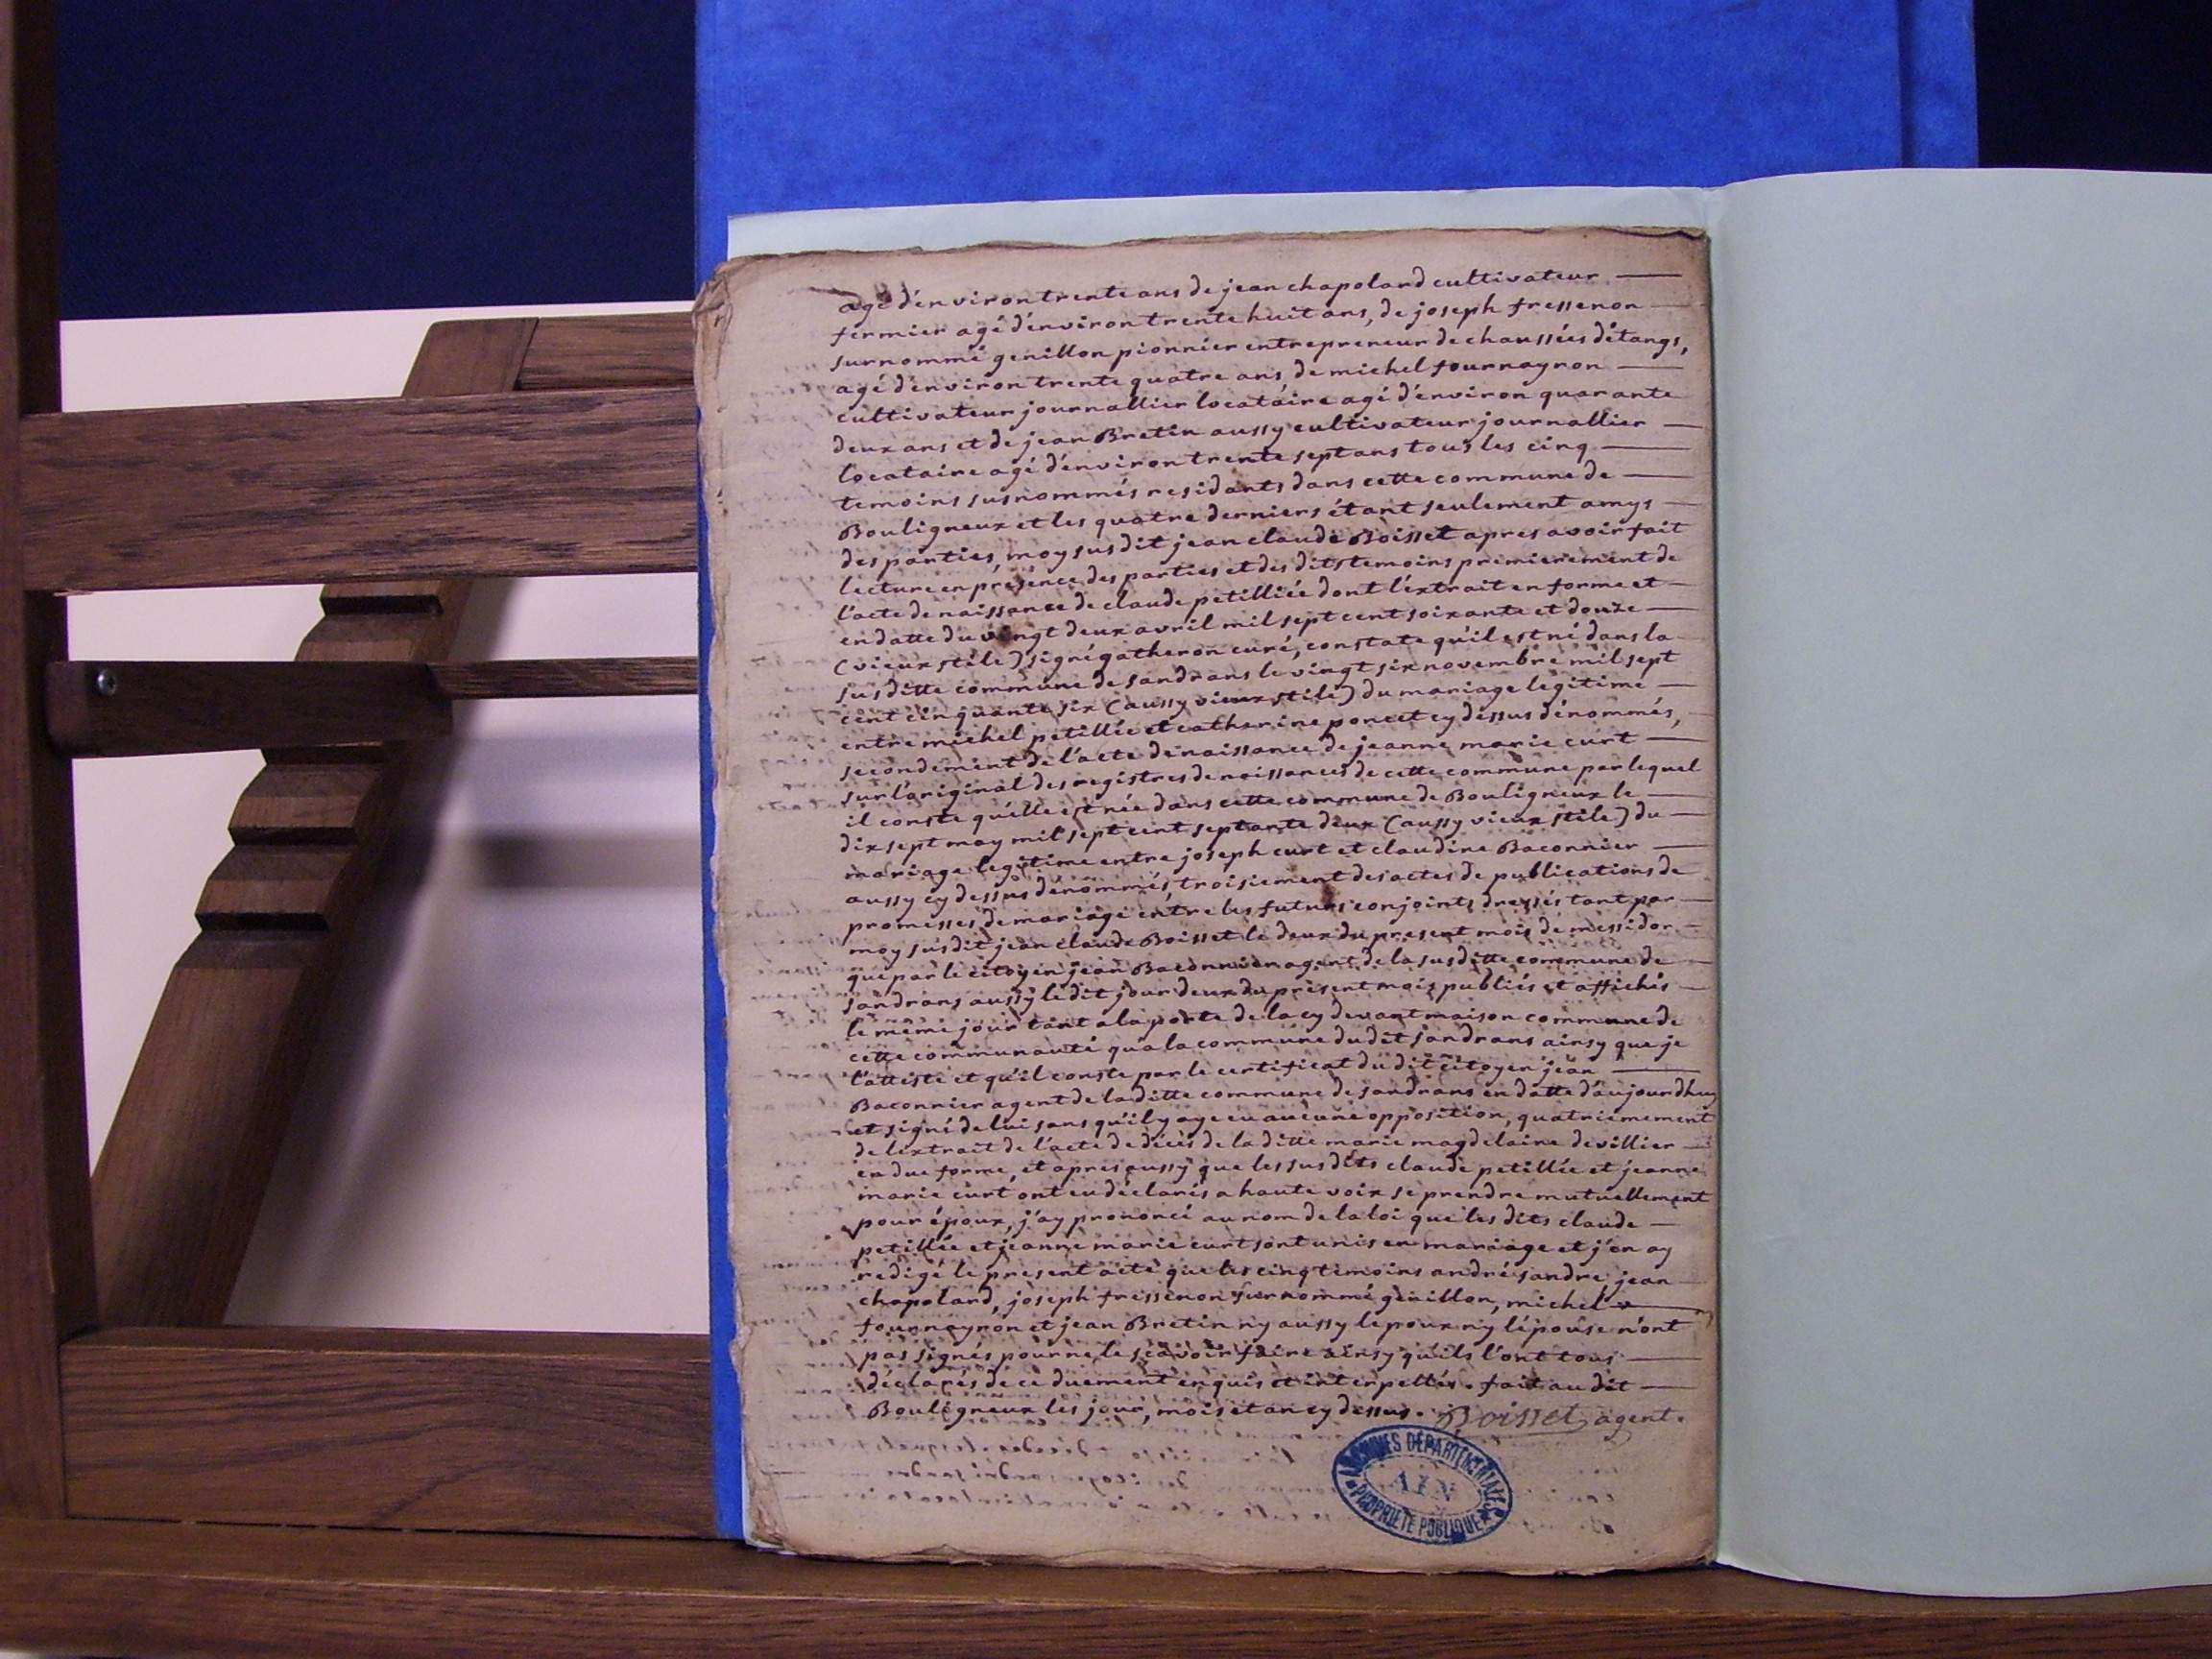 agé d'environ trente ans de jean chapolard cultivateur
fermier agé d'environ trente huit ans, de joseph fressenon
surnommé genillon pionnier entrepreneur de chaussées d'étangs,
agé d'environ trente quatre ans, de michel fournayron
cultivateur journallier locatáire agé d'énviron quarante
deux ans et de jean Bretin aussy cultivateur journallier
locataire agé d'énviron trente sept ans tous les cinq
temoins susnommés residants dans cette commune de
Bouligneux et les quatre derniers étant seulement amys
des parties, moy susdit jean claude Boisset apres avoir fait
lecture en présence des parties et des dits temoins premierement de
l'acte de naissance de claude petilliée dont l'éxtrait en forme et
en datte du vingt deux avril mil sept cent soixante et douze
(vieux stile) signé gatheron curé, constate qu'il est né dans la
susditte commune de sandrans le vingt six novembre mil sept
cent cinquante six (aussy vieux stile) du mariage legitime
entre michel petilliée et catherine poncet cy dessus dénommés,
secondement de l'acte de naissance de jeanne marie curt
sur l'original des registres de naissances de cette commune par lequel
il conste qu'élle est née dans cette commune de Bouligneux le
dix sept may mil sept cent septante deux (aussy vieux stile) du
mariage legitime entre joseph curt et claudine Baconnier
aussy cy dessus dénommés, troisiement des actes de publications de
promesses de mariage entre les futurs conjoints dressés tant par
moy susdit jean claude Boisset le deux du present mois de messidor
que par le citoyen jean Baconnier agent de la susditte commune de
sandrans aussy le dit jour deux du present mois publiés et affichés
le même jour tant a la porte de la cy devant maison commune de
cette communauté qu'a la commune du dit sandrans ainsy que je
l'atteste et qu'il conste par le certificat du dit citoyen jean
Baconnier agent de la ditte commune de sandrans en datte d'aujourdhuy
et signé de lui sans qu'il y aye eu aucune opposition, quatriemement
de l'extrait de l'acte de décès de la ditte marie magdelaine devillier
en due forme, et apres aussy que les susdits claude petilliée et jeanne
marie curt ont eu déclarés a haute voix se prendre mutuellement
pour époux, j'ay prononcé au nom de la loi que les dits claude
petilliée et jeanne marie curt sont unis en mariage et j'en ay
redigé le present acte que les cinq temoins andré sandre, jean
chapolard, joseph fressenon surnommé genillon, michel
fournayron et jean Bretin n'y aussy l'epoux n'y l'épouse n'ont
pas signés pour ne le sçavoir faire ainsy qu'ils l'ont tous
déclarés de ce duement enquis et interpellés. fait au dit
Bouligneux les jour, mois et an cy dessus. Boisset agent.
ARCHIVES DÉPARTEMENTALES
AIN
PROPRIÉTÉ PUBLIQUE